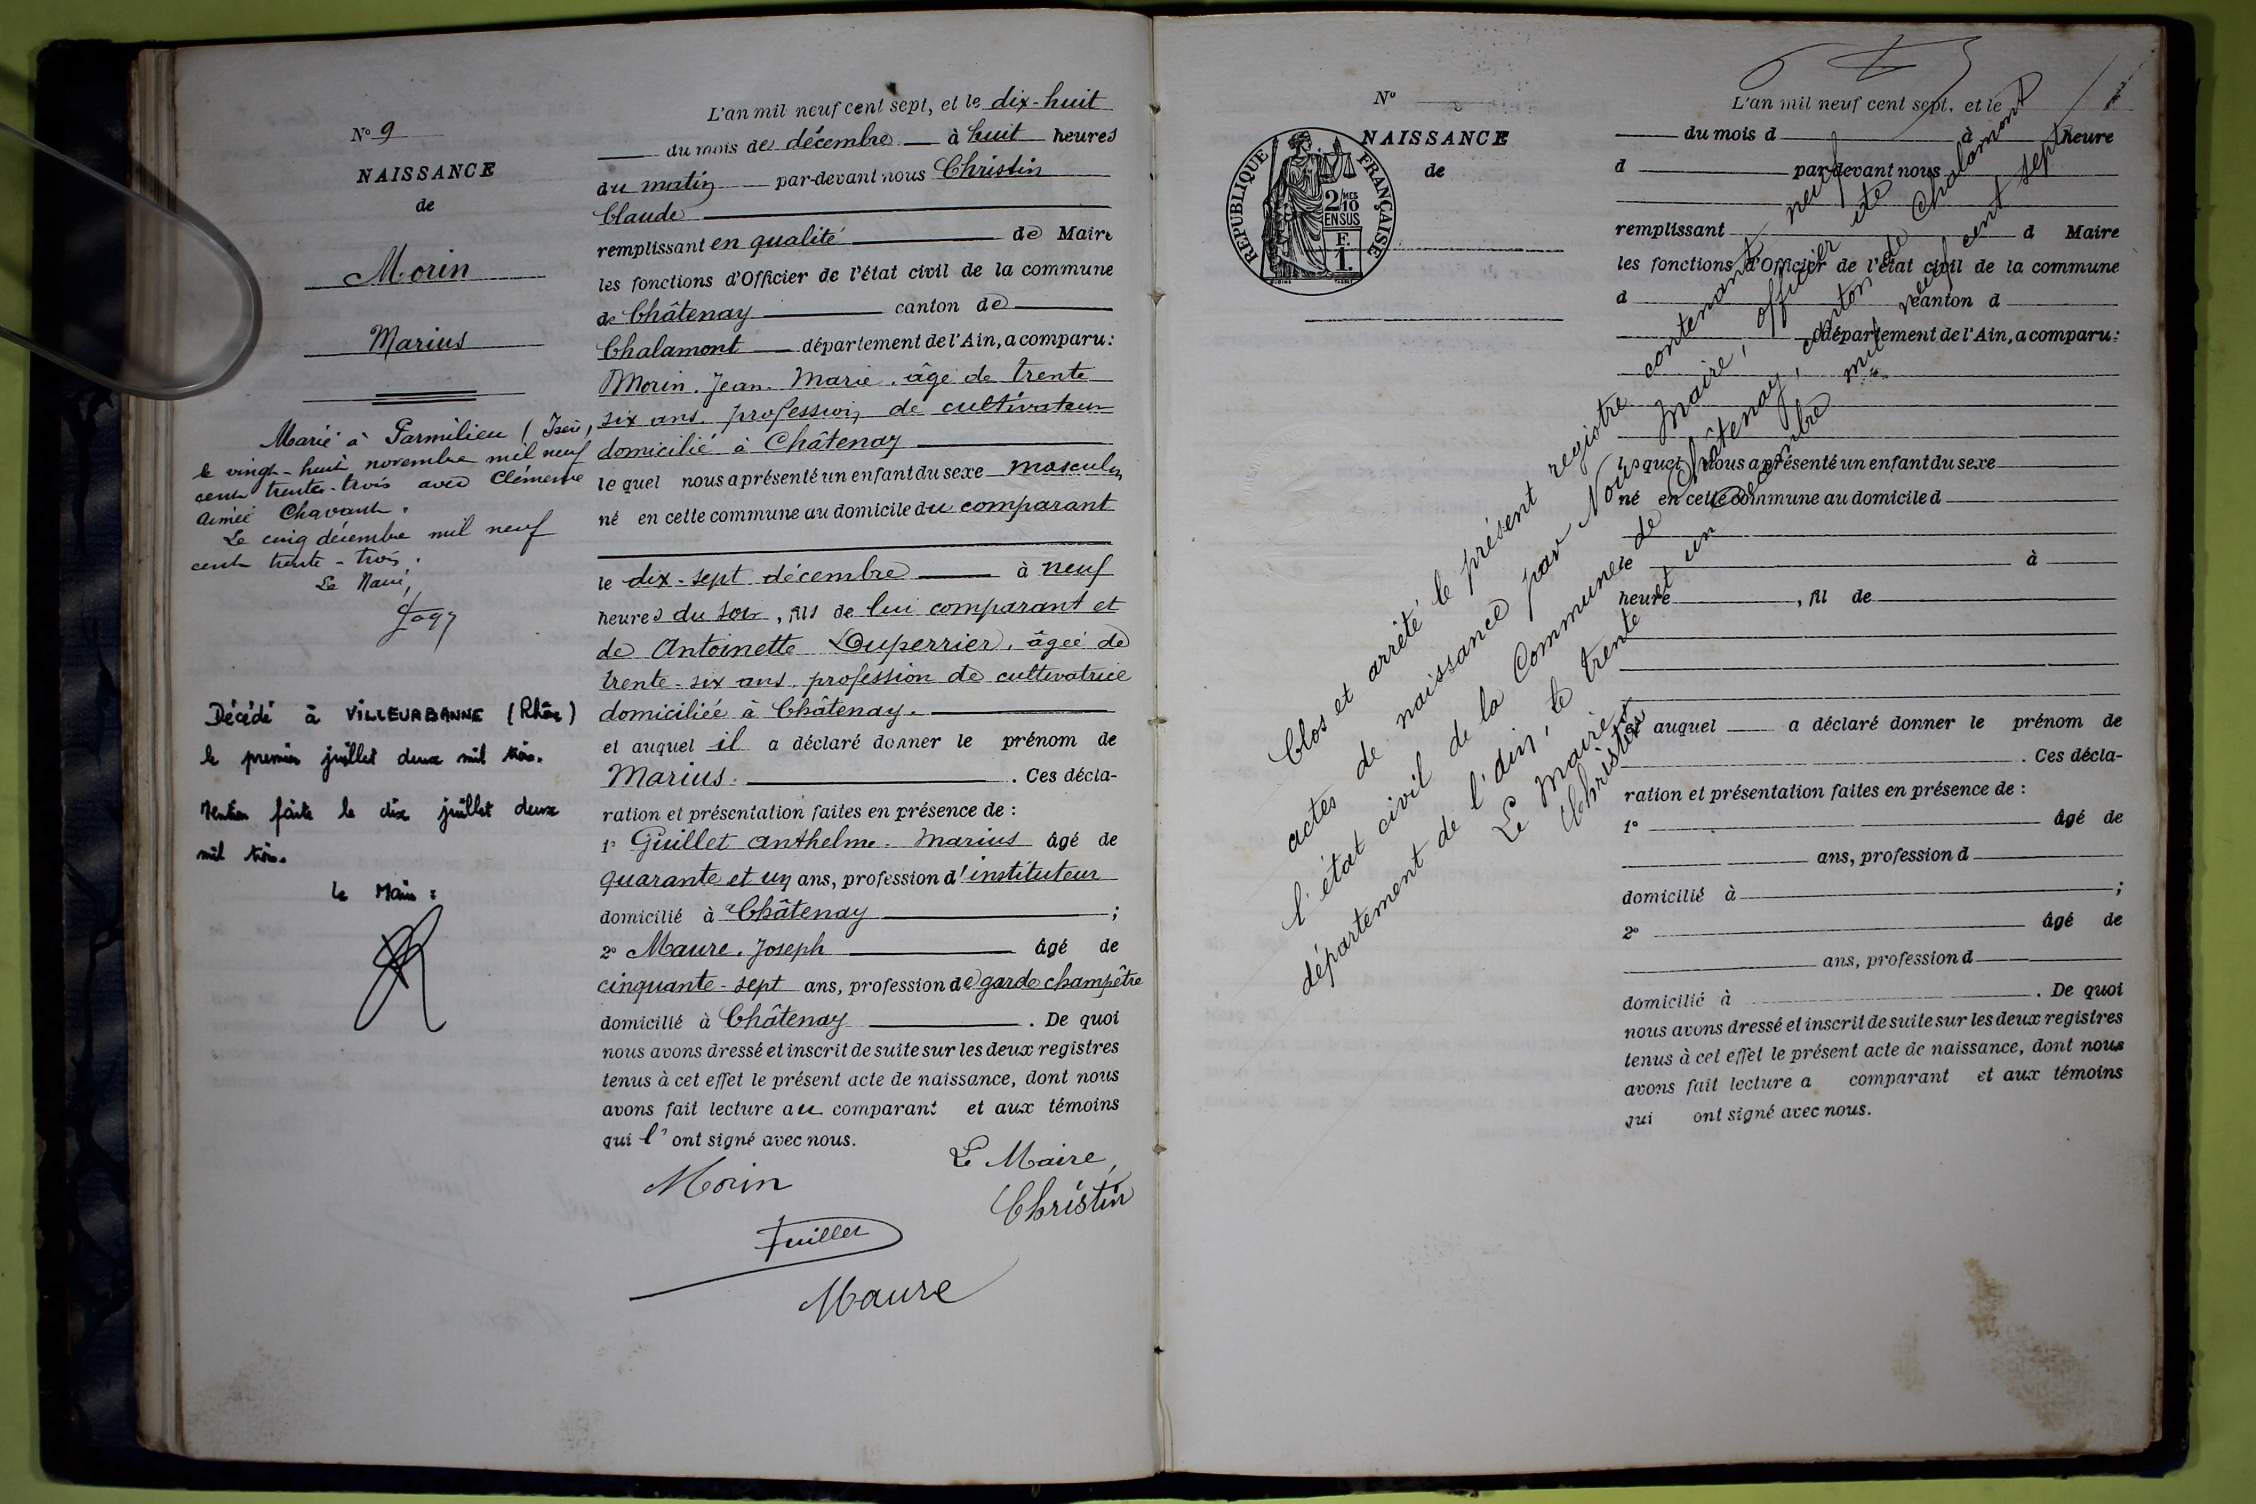 N° 9
NAISSANCE
de
Morin
Marius
Marié à Parmilieu (Isère),
le vingt-huit novembre mil neuf
cent trente-trois avec Clémence
Aimée Chavant.
Le cinq décembre mil neuf
cent trente-trois.
Le Maire,
Décédé à VILLEURBANNE (Rhône)
le premier juillet deux mil trois.
Mention faite le dix juillet deux
mil trois.
Le Maire :
L'an mil neuf cent sept, et le dix-huit
du mois de décembre à huit heures
du matin par-devant nous Christin
Claude
remplissant en qualité de Maire
les fonctions d'Officier de l'état civil de la commune
de Châtenay canton de
Chalamont département de l'Ain, a comparu :
Morin. Jean. Marie. âgé de trente
six ans. profession de cultivateur
domicilié à Châtenay
lequel nous a présenté un enfant du sexe masculin
né en cette commune au domicile du comparant
le dix-sept décembre à neuf
heures du soir, fils de lui comparant et
de Antoinette Duperrier, âgée de
trente-six ans. profession de cultivatrice
domiciliée à Châtenay.
et auquel il a déclaré donner le prénom de
Marius. . Ces décla-
ration et présentation faites en présence de :
1° Guillet Anthelme. Marius âgé de
quarante et un ans, profession d'instituteur
domicilié à Châtenay ;
2° Maure. Joseph âgé de
cinquante-sept ans, profession de garde champêtre
domicilié à Châtenay . De quoi
nous avons dressé et inscrit de suite sur les deux registres
tenus à cet effet le présent acte de naissance, dont nous
avons fait lecture au comparant et aux témoins
qui l'ont signé avec nous.
Le Maire,
Morin
Christin
Guillet
Maure
N°
NAISSANCE
de
RÉPUBLIQUE FRANÇAISE
2/10MES
EN SUS
F.
1.
L'an mil neuf cent sept, et le
du mois d à heure
d par-devant nous
remplissant d Maire
les fonctions d'Officier de l'état civil de la commune
d canton d
département de l'Ain, a comparu :
lequel nous a présenté un enfant du sexe
né en cette commune au domicile d
le à
heure , fil de
et auquel a déclaré donner le prénom de
. Ces décla-
ration et présentation faites en présence de :
1° âgé de
ans, profession d
domicilié à ;
2° âgé de
ans, profession d
domicilié à . De quoi
nous avons dressé et inscrit de suite sur les deux registres
tenus à cet effet le présent acte de naissance, dont nous
avons fait lecture a comparant et aux témoins
qui ont signé avec nous.
Clos et arrêté le présent registre contenant neuf
actes de naissance par Nous Maire, officier de
l'état civil de la Commune de Châtenay, canton de Chalamont
département de l'Ain, le trente et un Décembre mil neuf cent sept
Le Maire
Christin